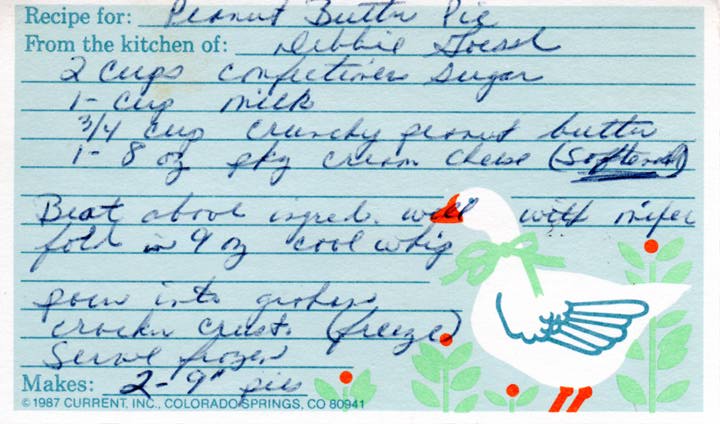 Recipe for: Peanut Butter Pie
From the kitchen of: Debbie
2 cups confectioners sugar
1- cup milk
3/4 cup crunchy peanut butter
1- 8 oz pkg cream cheese (softened)
Beat above ingred. well with mixer
fold in 9 oz cool whip
pour into graham
cracker crusts (freeze)
Serve frozen
Makes: 2-9" pies
© 1987 CURRENT, INC., COLORADO SPRINGS, CO 80941